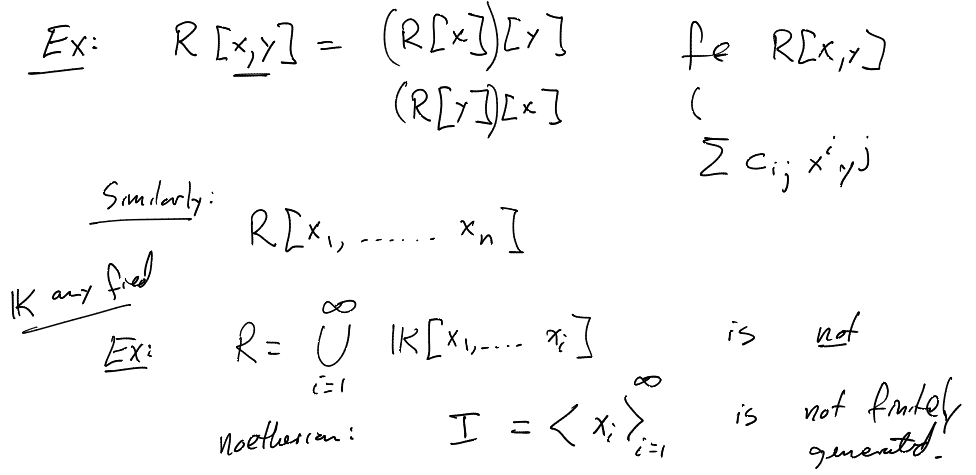 Ex: R[x,y] = (R[x])[y] f ∈ R[x,y]
(R[y])[x] (
Σ c_{ij} x^i y^j
Similarly: R[x_1, ...... x_n]
𝕂 any field
Ex: R = ⋃_{i=1}^∞ 𝕂[x_1,.... x_i] is not
noetherian: I = <x_i>_{i=1}^∞ is not finitely
generated.